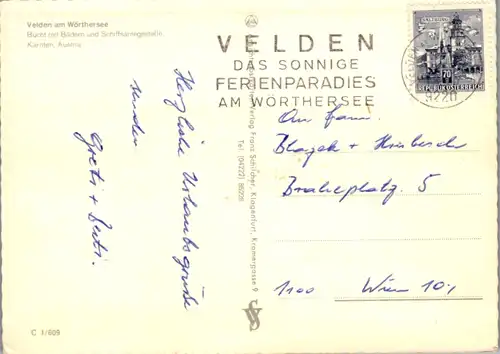 Velden am Wörthersee
Bucht mit Bädern und Schiffsanlegestelle
Kärnten, Austria
VELDEN
DAS SONNIGE
FERIENPARADIES
AM WÖRTHERSEE
SALZBURG
70
REPUBLIK ÖSTERREICH
9220
Herzliche Urlaubsgrüße
senden
Gretl + Berti.
Verlag Franz Schilcher, Klagenfurt, Kramergasse 9
Tel. (04222) 85228
An Fam.
Blazek +
5
1100 Wien 10.,
C 1/609